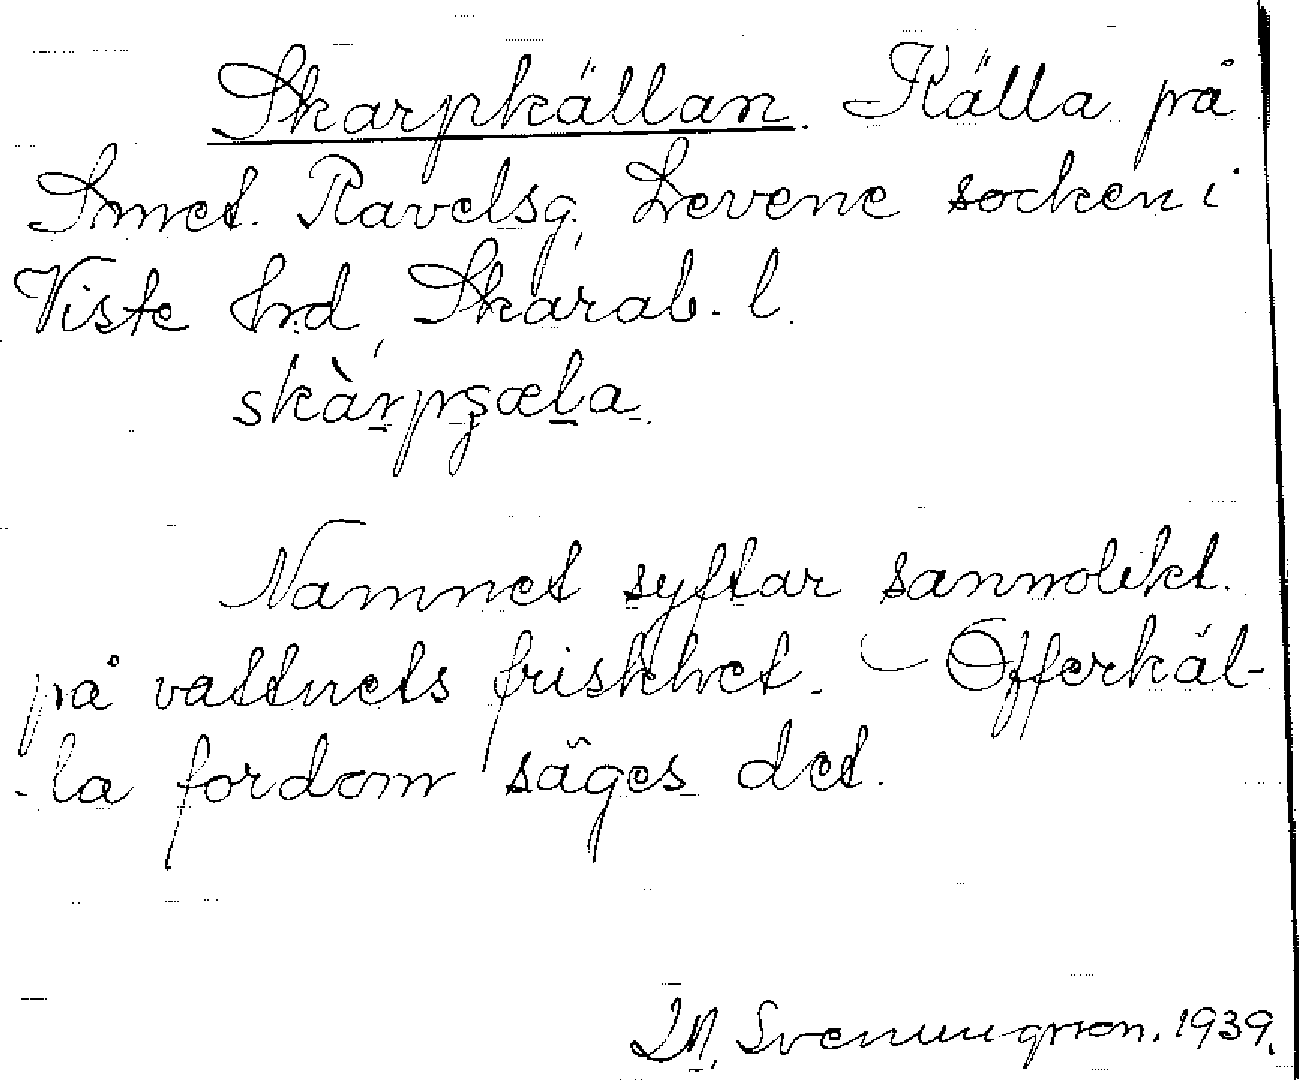 Skarpkällan. Källa på
Smet. Ravelsg. Levene socken i
Viste hrd, Skarab. l.
skàrpʒæla.
Namnet syftar sannolikt
på vattnets friskhet. – Offerkäl-
-la fordom säges det.
Svenungsson. 1939.